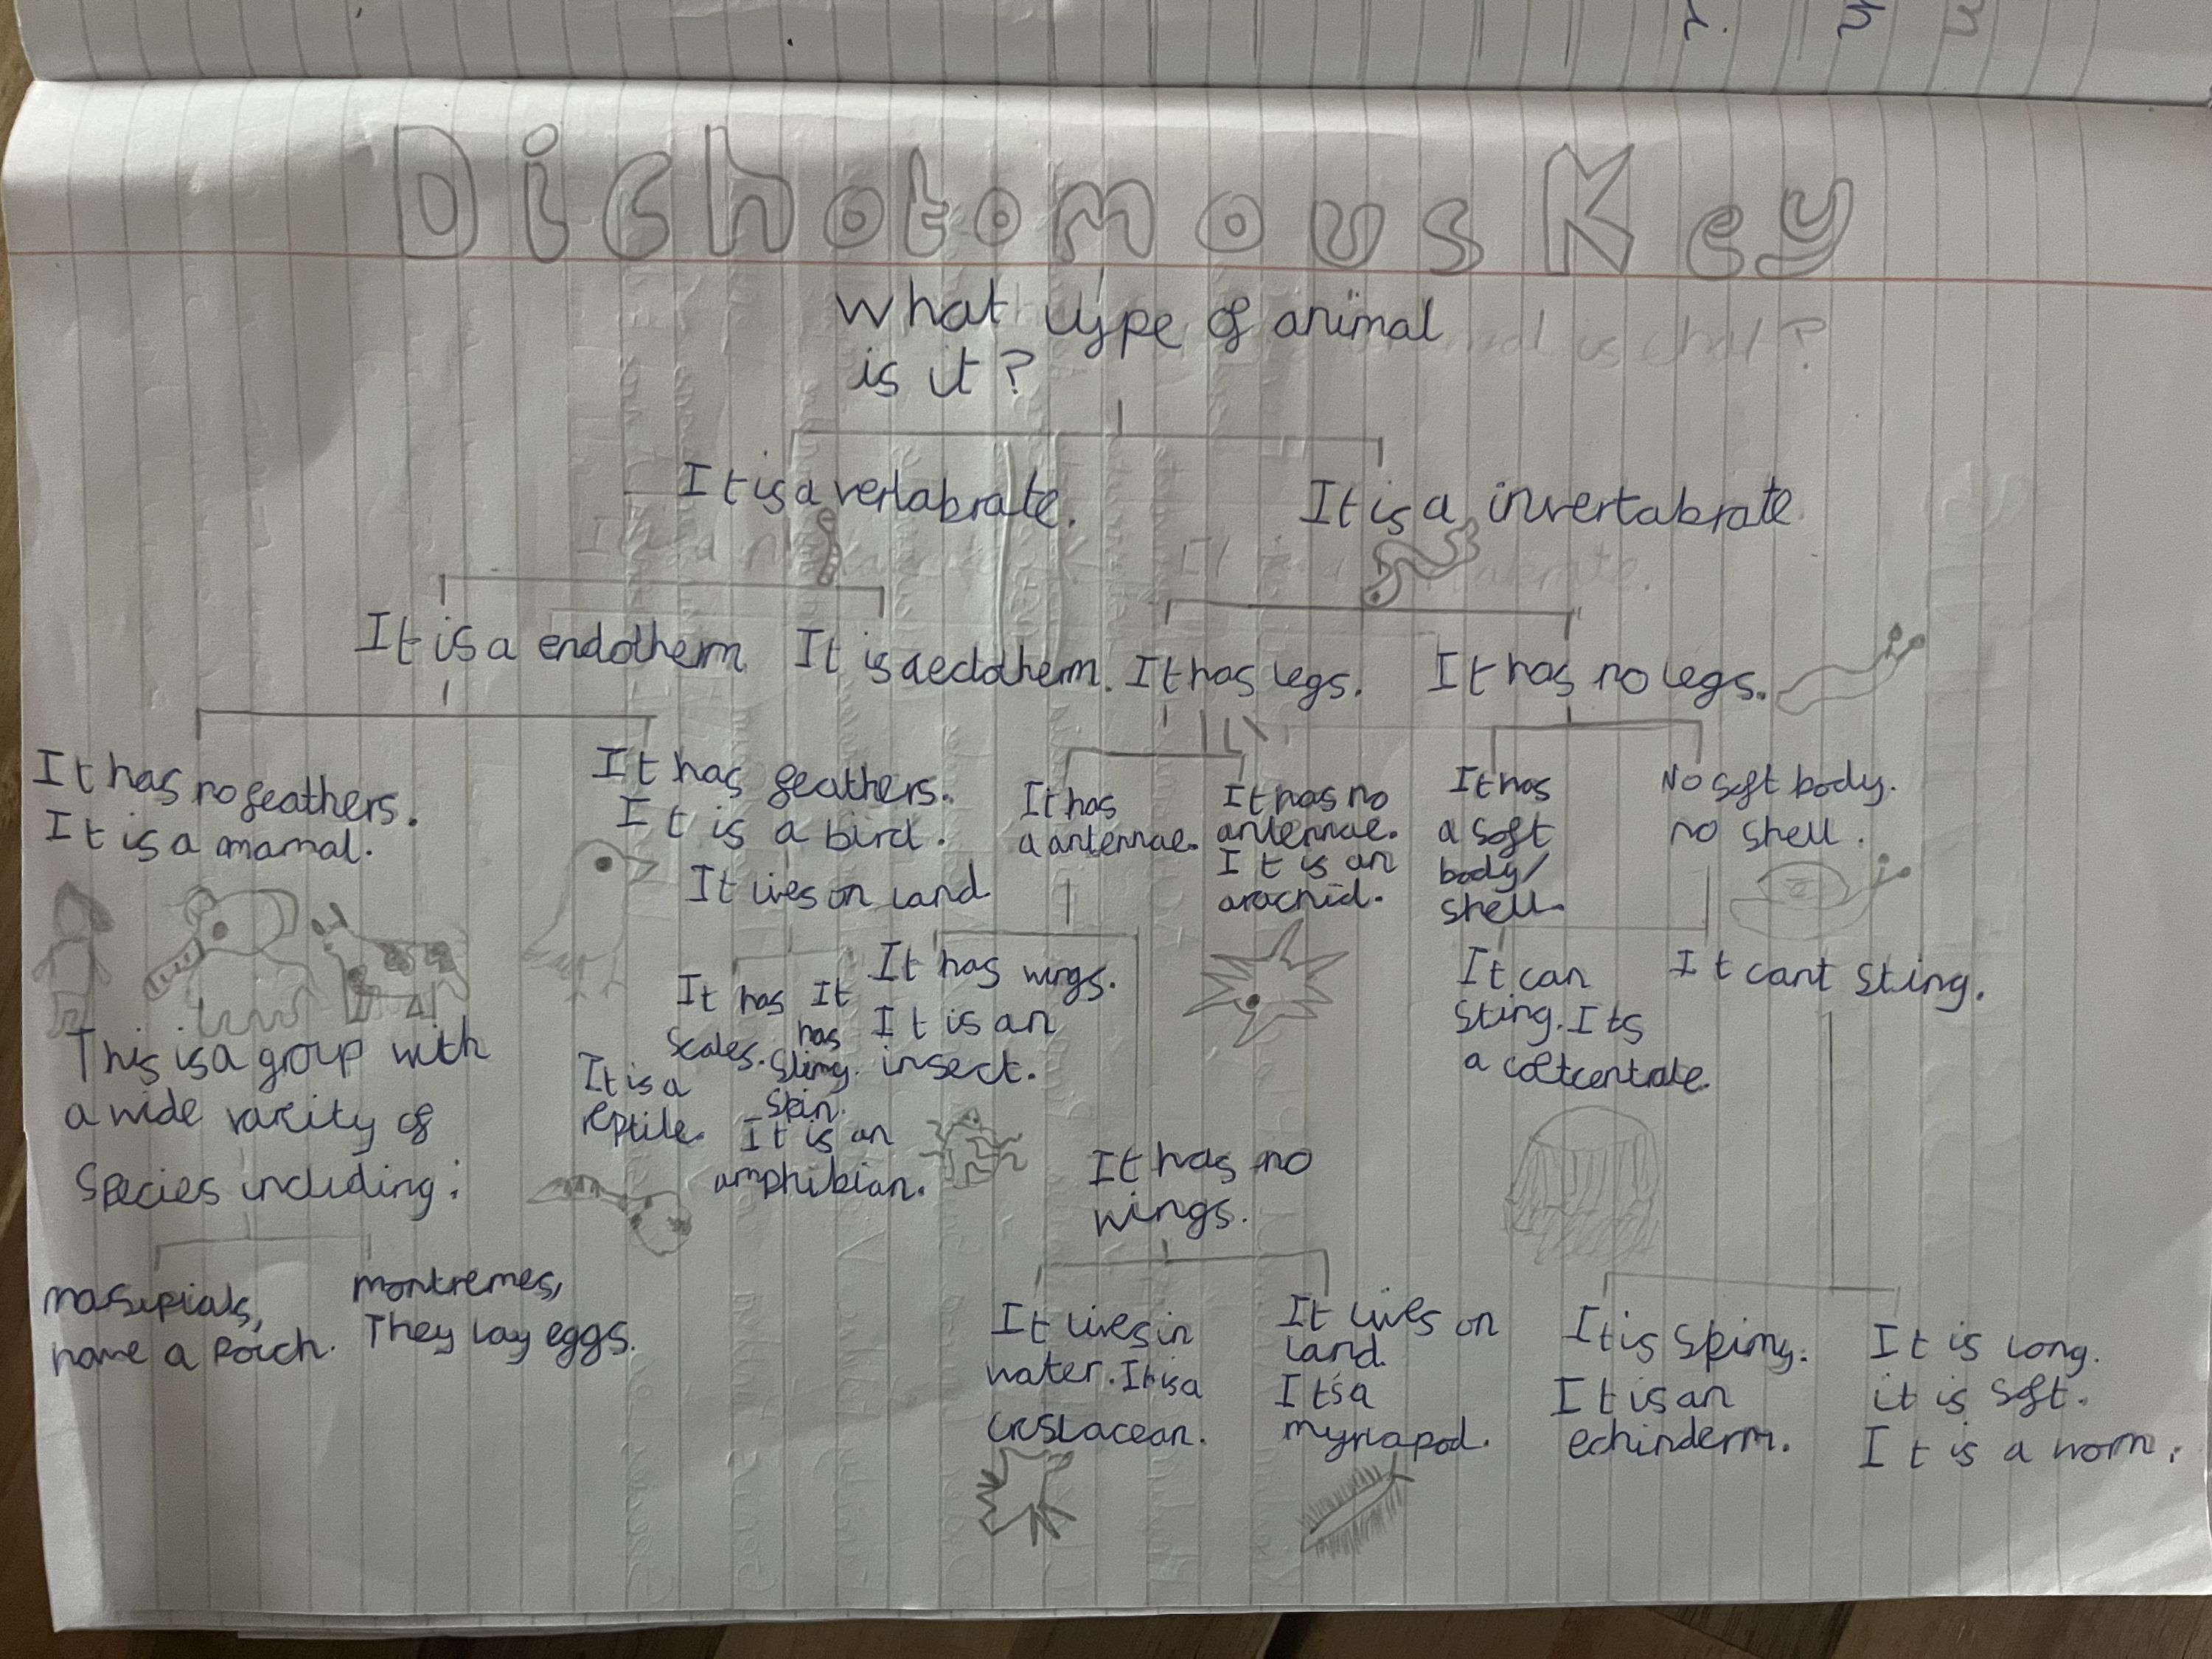 Dichotomous Key
What type of animal
is it?
It is a vertabrate.
It is a invertabrate
It is a endotherm
It is a ectotherm.
It has legs.
It has no legs.
It has no feathers.
It is a mamal.
It has feathers.
It is a bird.
It lives on land
It has
a antennae.
It has no
antennae.
It is an
arachnid.
It has
a soft
body/
shell.
No soft body.
no shell.
It has
scales.
It is a
reptile.
It
has
slimy
skin.
It is an
amphibian.
It has wings.
It is an
insect.
It can
sting. Its
a
It cant sting.
This is a group with
a wide varity of
species including:
It has no
wings.
marsupials,
have a pouch.
montremes,
They lay eggs.
It lives in
water. It is a
crustacean.
It lives on
land.
It's a
myriapod.
It is spimy.
It is an
echinderm.
It is long.
it is soft.
It is a worm.